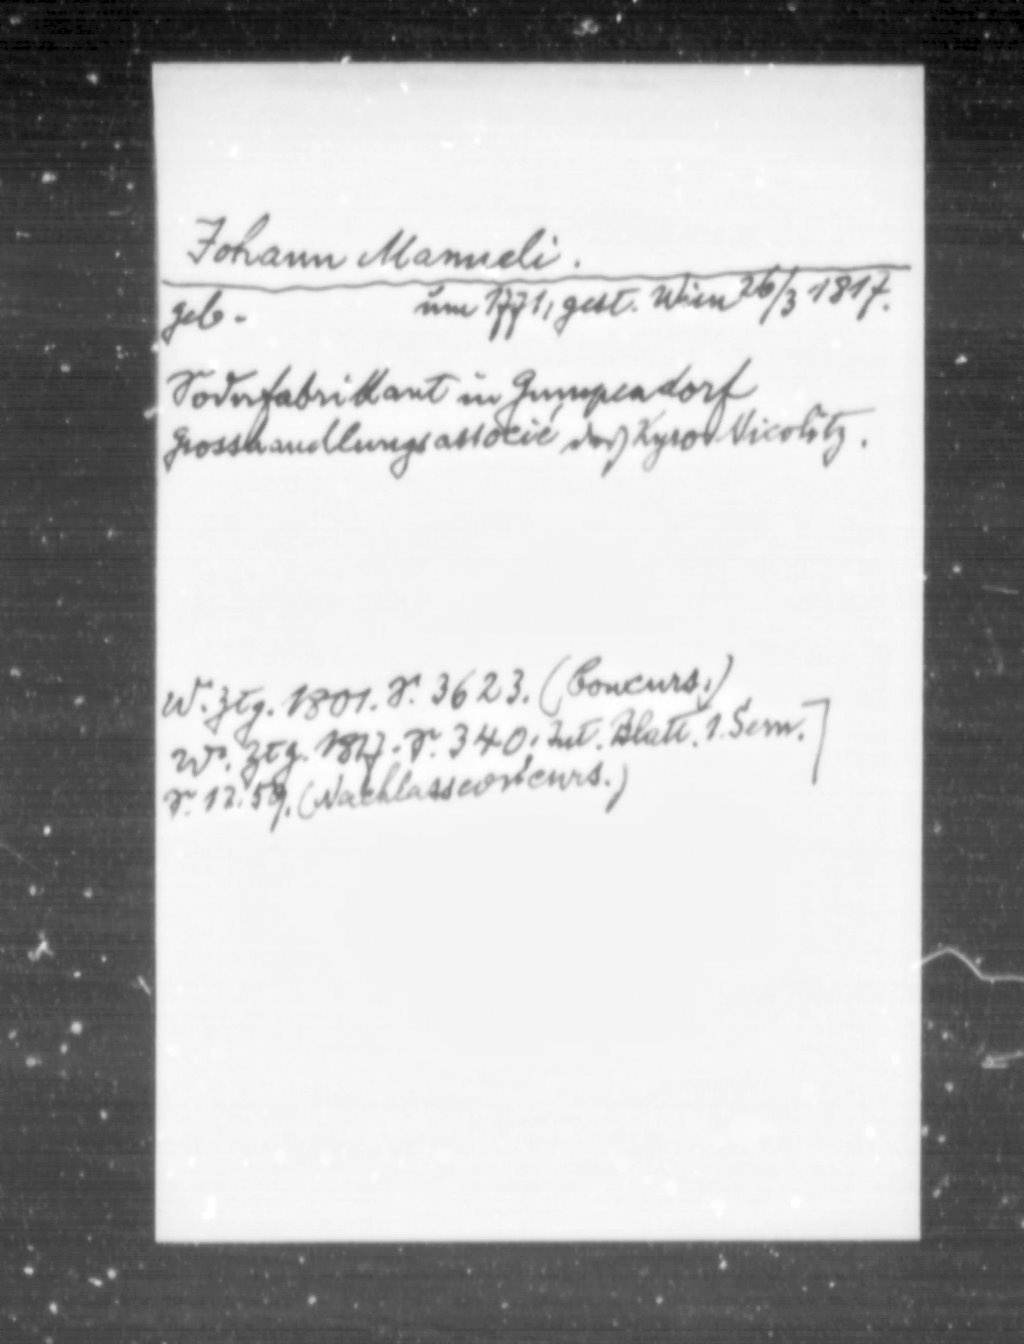 Johann Manueli.
geb. um 1771, gest. Wien 26/3 1817.
Sodafabrikant in Gumpendorf
Grosshandlungsassocié des Kyro Nicolitz.
W. Ztg. 1801. S. 3623. (Concurs.)
W. Ztg. 1817. S. 340. Int. Blatt. 1. Sem.
S. 1259. (Nachlassconcurs.)